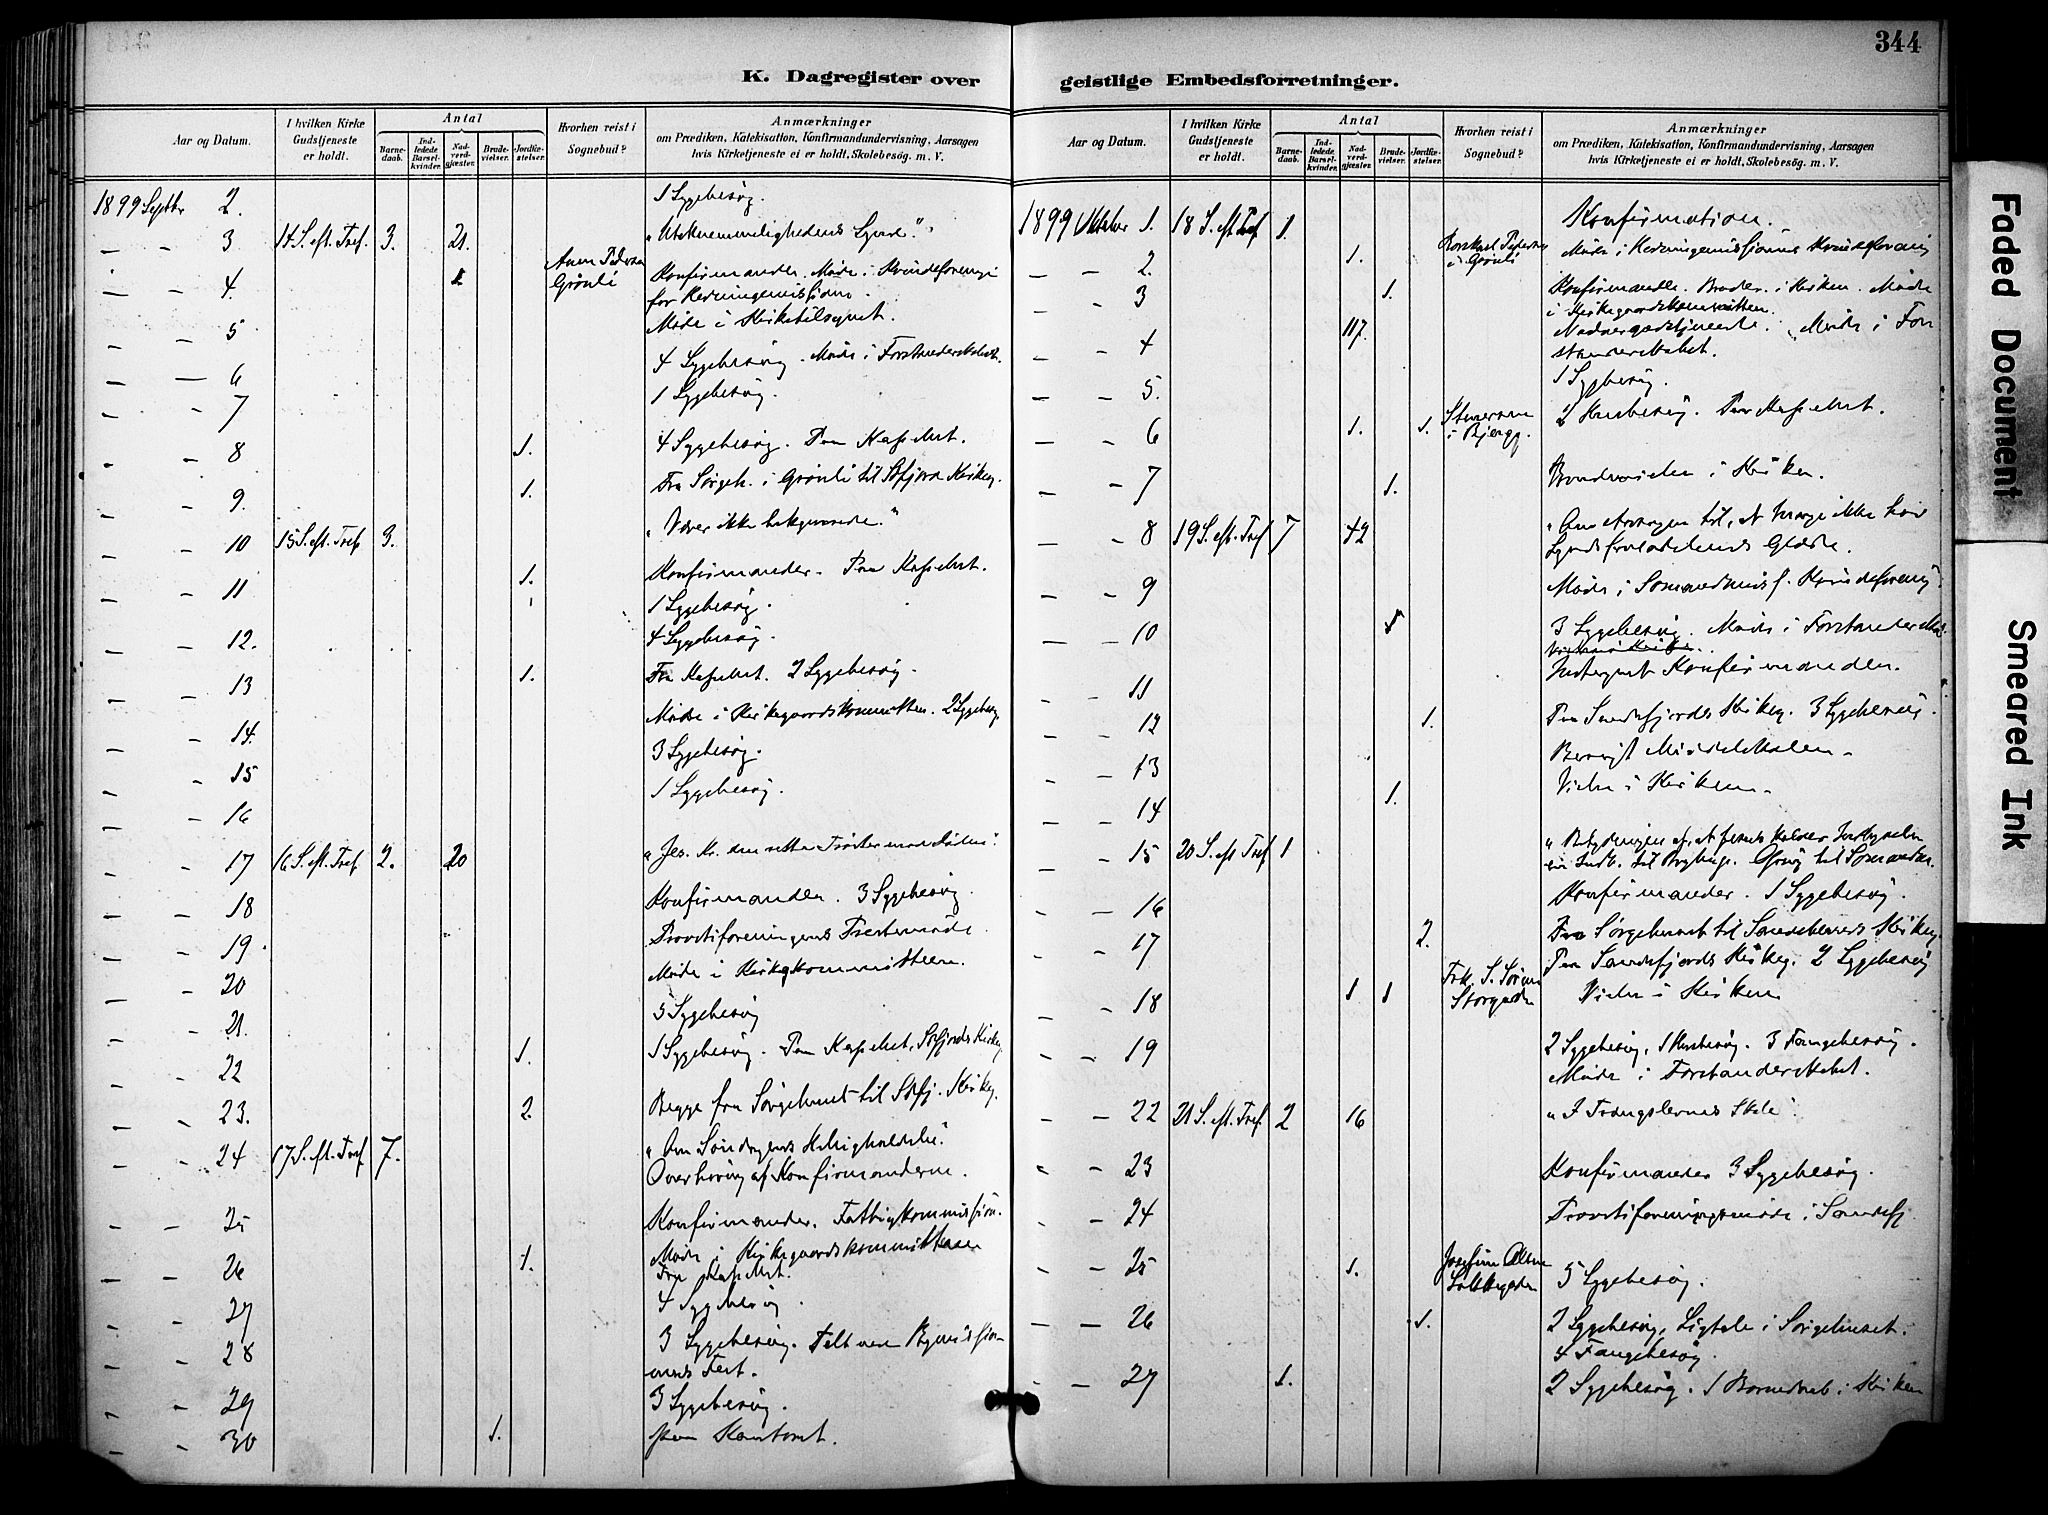 344
K. Dagregister over geistlige Embedsforretninger.
Aar og Datum.
I hvilken Kirke Gudstjeneste er holdt.
Antal
Barnedaab.
Indledede Barselkvinder.
Nadverdgjæster.
Brudevielser.
Jordfæstelser.
Hvorhen reist i Sognebud?
Anmærkninger
om Prædiken, Katekisation, Konfirmandundervisning, Aarsagen
hvis Kirketjeneste ei er holdt, Skolebesög. m. V.
1899 Septbr 2. 1 Sygebesøg.
— - 3 14 S. eft. Tref. 3. 21. "Utaknemmelighedens Synd."
— - 4. 1 Anne Pedersen Grønli Konfirmander. Møde i Kvindeforening
for Hedningemissionen.
— - 5 Møde i Kirketilsynet.
— — 6 4 Sygebesøg. Møde i Forstanderskabet.
— - 7 1 Sygebesøg.
- - 8 1. 4 Sygebesøg. Fra Kapellet.
- - 9. 1. Fra Sørgeh. i Grønli til Kirkeg.
— - 10 15 S. eft. Tref. 3. "Vær ikke bekymrede."
— - 11 1. Konfirmander. Fra Kapellet.
1 Sygebesøg.
— - 12. 4 Sygebesøg.
— - 13 1. Fra Kapellet. 2 Sygebesøg.
— - 14. Møde i Kirkegaardskommitteen. 2 Sygebesøg.
— - 15 3 Sygebesøg.
- - 16 1 Sygebesøg.
- - 17 16 S. eft. Tref. 2. 20 "Jes. Kr. den rette Trøster mod Døden."
- - 18 Konfirmander. 3 Sygebesøg.
- - 19. Provstiforeningens Møde
- - 20 Møde i Kirkekommitteen.
- - 21. 5 Sygebesøg
- - 22 1. 1 Sygebesøg. Fra Kapellet, Kirkeg.
- - 23. 2 Begge fra Sørgehuset til Kirkeg.
- - 24 17 S. eft. Tref. 7. "Om Søndagens Helligholdelse."
Overhøring af Konfirmanderne.
- - 25 Konfirmander. Fattigkommission.
- - 26 1. Møde i Kirkegaardskommitteen
Fra Kapellet.
- - 27 4 Sygebesøg.
- - 28 3 Sygebesøg. Talt ved Bymissionens
Fest.
- - 29 3 Sygebesøg.
- - 30 1. paa Kontoret.
K. Dagregister over geistlige Embedsforretninger.
Aar og Datum.
I hvilken Kirke Gudstjeneste er holdt.
Antal
Barnedaab.
Indledede Barselkvinder.
Nadverdgjæster.
Brudevielser.
Jordfæstelser.
Hvorhen reist i Sognebud?
Anmærkninger
om Prædiken, Katekisation, Konfirmandundervisning, Aarsagen
hvis Kirketjeneste ei er holdt, Skolebesög. m. V.
1899 Oktober 1. 18 S. eft. Tref 1. Konfirmation.
— - 2. 1. i Grønli Møde i Hedningemissionens Kvindeforening
— - 3 1. Konfirmander. i Kirken. Møde
i Kirkegaardskommitteen.
— - 4 117. Nadvergudstjeneste. Møde i Forstanderskabet.
— - 5. 1 Sygebesøg.
— - 6 1. 1. i Bjergg. 2 Husbesøg. Fra Kapellet.
— - 7 1. Brudevielse i Kirken.
— - 8 19 S. eft. Tref 7 42 "Om Aarsagen til, at mange ikke har
Syndsforladelsens Glæde.
— - 9 Møde i Sømandsmiss. Kvindeforening.
— - 10 3 Sygebesøg. Møde i Forstandersk.
— - 11 Konfirmanden.
— - 12 1. Fra Sandefjords Kirkeg. 3 Sygebesøg.
— - 13 Besøgt Middelskolen.
— - 14 1. Vielse i Kirken.
— - 15 20 S. eft. Tref 1
- - 16 Konfirmander. 1 Sygebesøg.
- - 17 2. Fra Sørgehuset til Sandeherreds Kirkeg.
Fra Sandefjords Kirkeg. 2 Sygebesøg
— - 18 1 1 Storgaden Vielse i Kirken
- - 19 2 Sygebesøg, 1 Husbesøg. 3 Fangebesøg.
Møde i Forstanderskabet.
— - 22 21 S. eft. Tref. 2 16 "I Trængslernes Skole".
- - 23 Konfirmander 3 Sygebesøg.
- - 24 Provstiforeningsmøde i Sandefj.
- - 25 1. 5 Sygebesøg.
— - 26 1. 2 Sygebesøg, Ligtale i Sørgehuset.
4 Fangebesøg.
- - 27 1. 2 Sygebesøg. 1 Barnedaab i Kirken
Faded Document
Smeared Ink